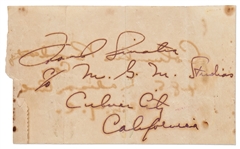 Frank Sinatra
% M. G. M. Studios
Culver City
California